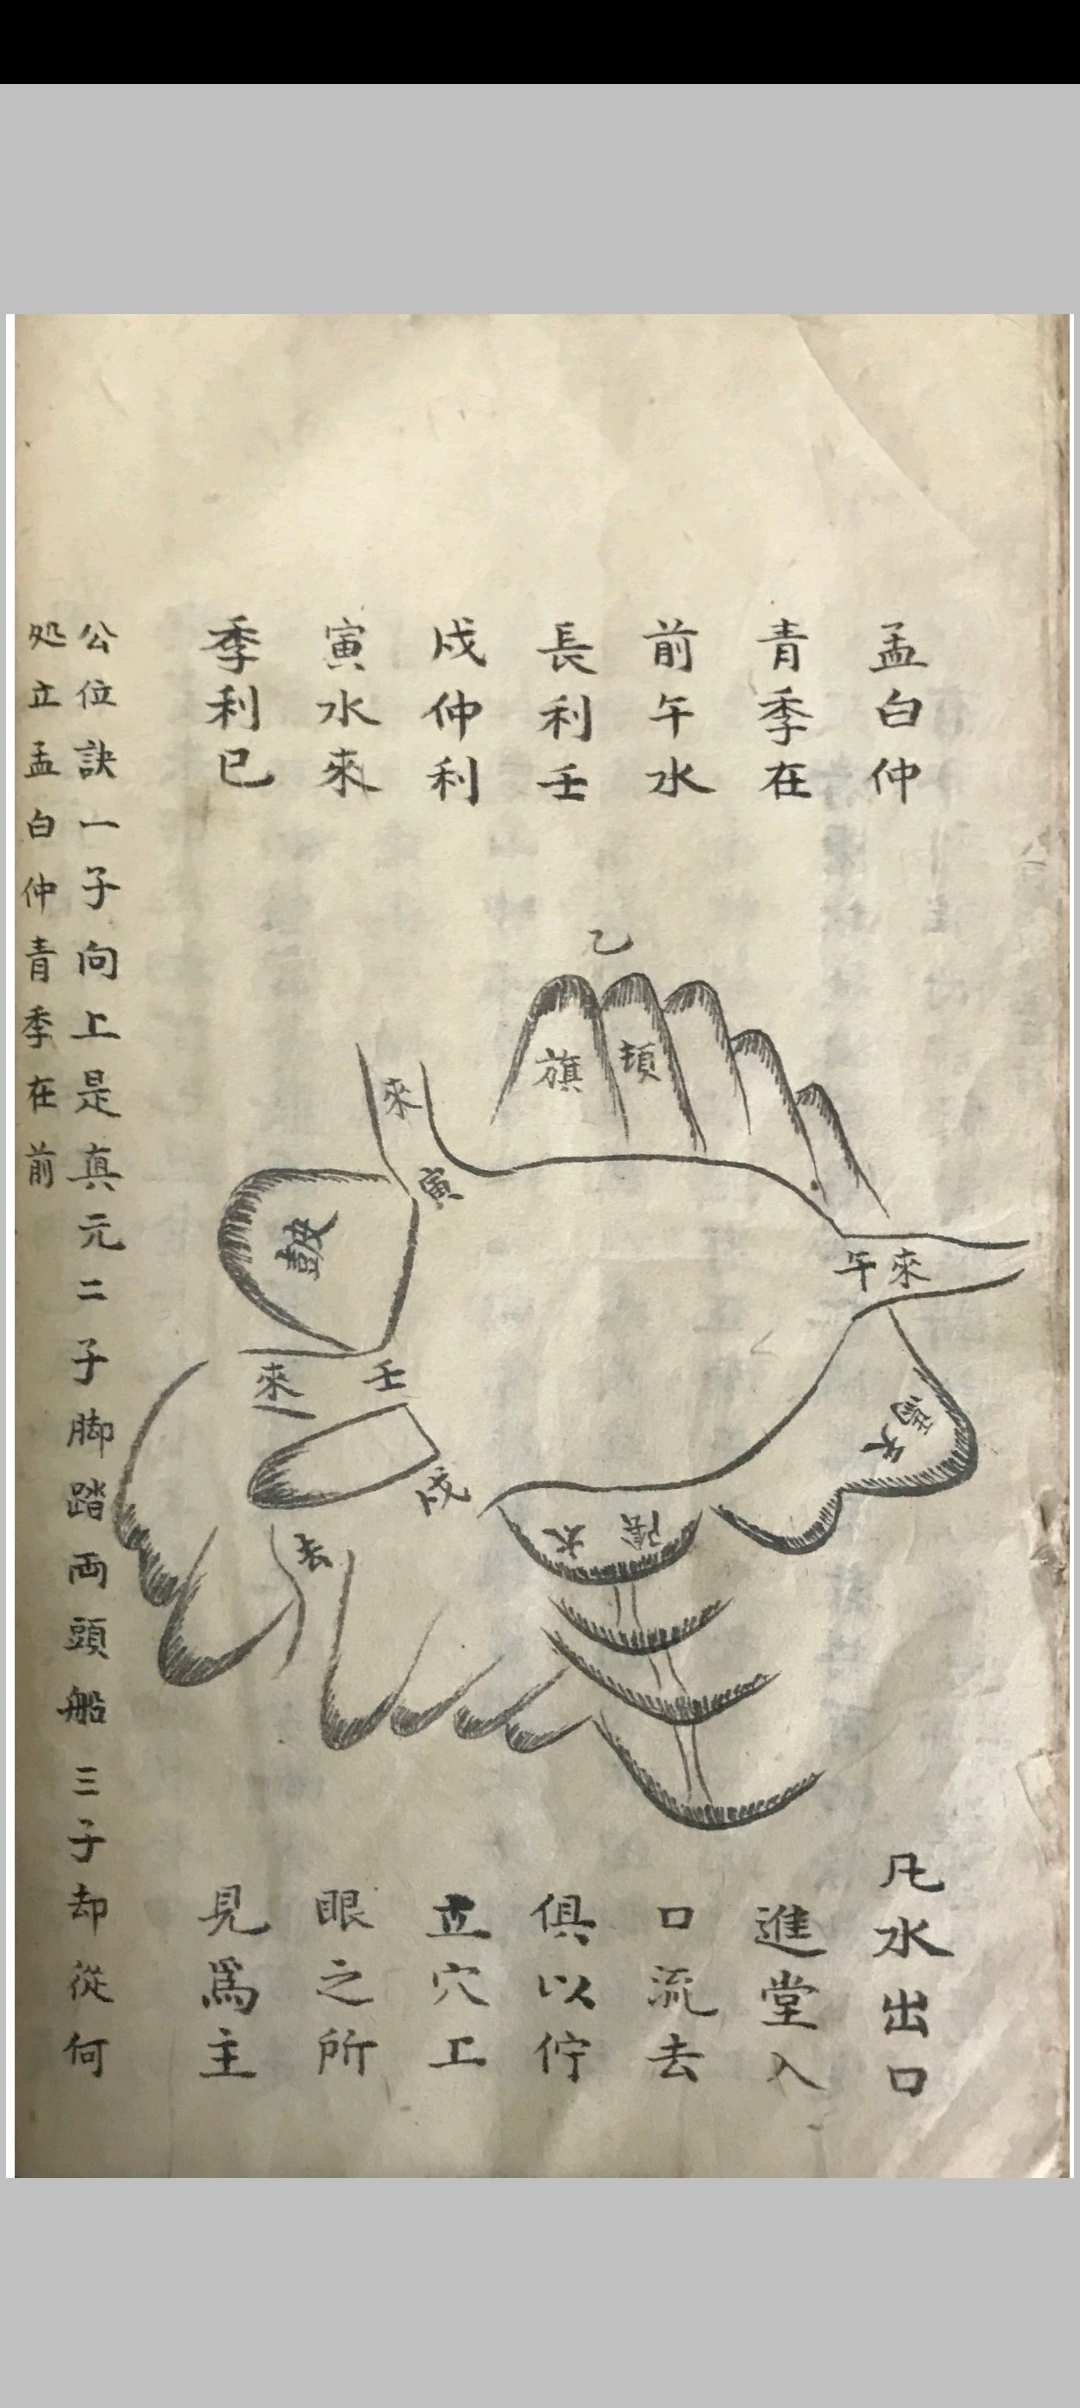 孟白仲
青季在
前午水
長利壬
戍仲利
寅水來
季利已
乙
旗
頓
來
寅
鼓
午來
來
壬
戍
去
太陰
天
凡水出口
進堂入
口流去
俱以佇
立穴工
眼之所
見爲主
公位訣一子向上是真元二子脚踏両頭船三子却從何
处立孟白仲青季在前